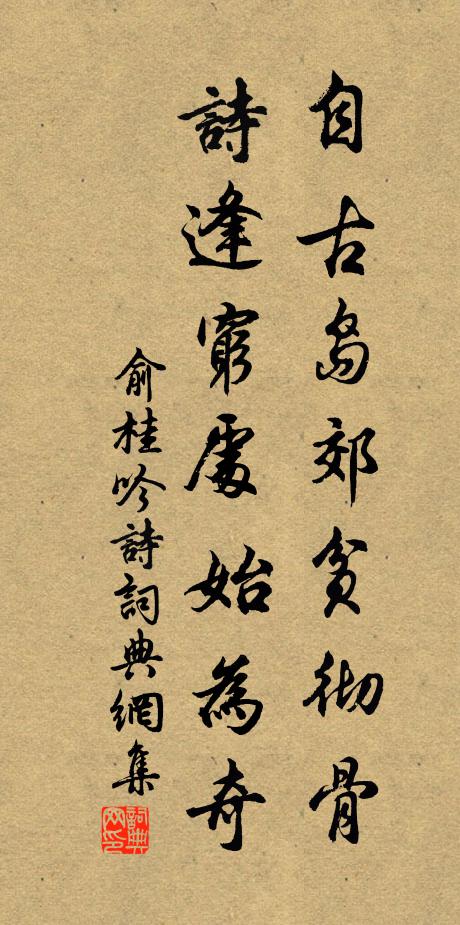 自古島郊貧彻骨
詩逢窮處始為奇
俞桂吟詩詞典網集
詞典網印